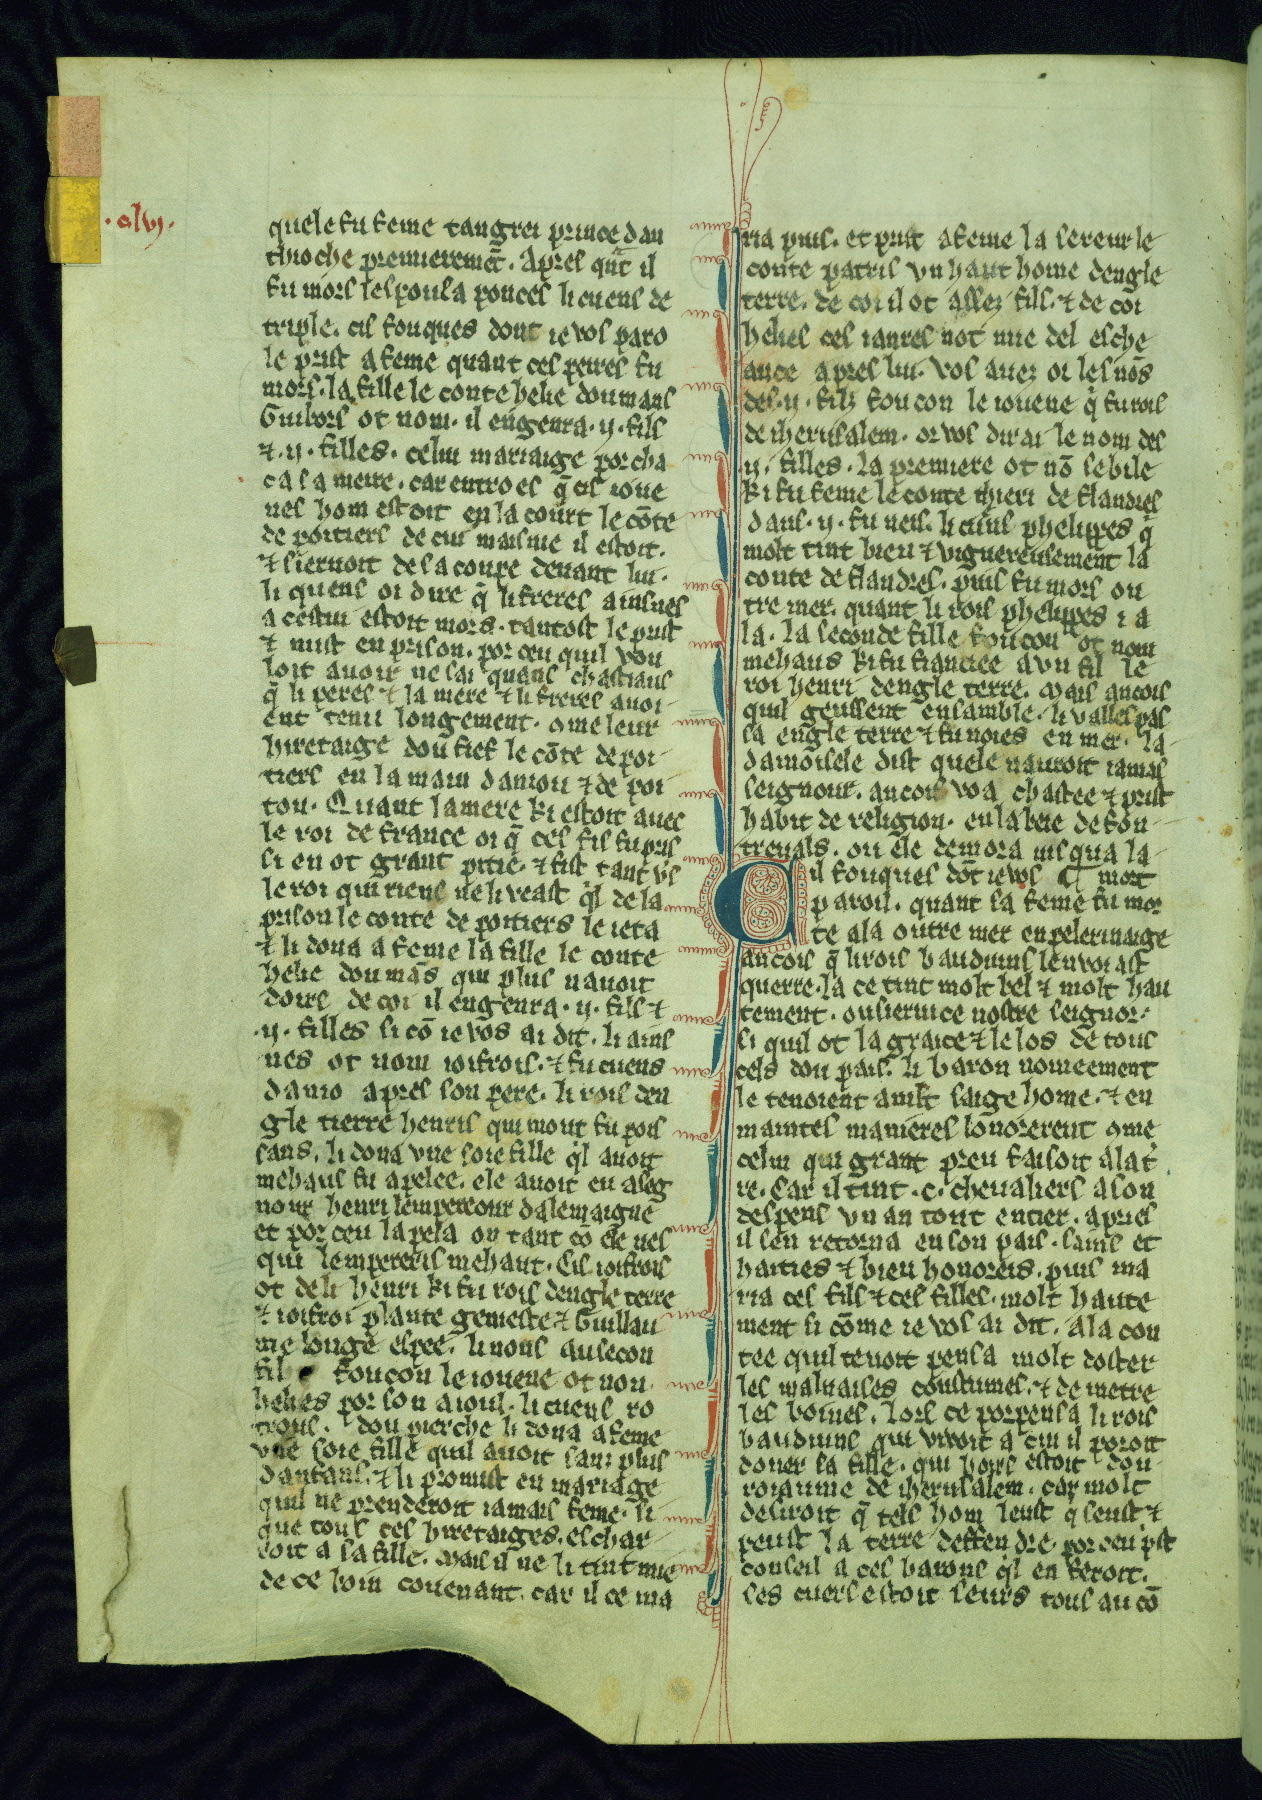 .clvj.
quele fu feme tangrei prince dan
thioche premieremēt. Apres q̄nt il
fu mors lespousa ponces li cuens de
triple. cil fouques dont ie vos paro
le prist a feme quant ces peires fu
mors. la fille le conte helie dou mans
Guibors ot nom. il engenra .ij. fils
⁊ .ij. filles. celui mariaige porcha
ca sa meire. car entroes q̄ cis ioue
nes hom estoit en la court le cōte
de poitiers de cui maisnie il estoit.
⁊ siervoit de sa coupe devant lui.
li quens oi dire q̄ li freres ainsnes
a cestui estoit mors. tantost le prist
⁊ mist en prison. por ceu quil vou
loit avoir ne sai quans chastiaus
q̄ li peres ⁊ la mere ⁊ li freres avoi
ent tenu longement. ꝯme leur
hiretaige dou fief le cōte de poi
tiers en la main daniou ⁊ de poi
tou. Quant la mere ki estoit avec
le roi de france oi q̄ ces fis fu pris
si en ot grant pitie. ⁊ fist tant v's
le roi qui riens ne li veast q̄l de la
prison le conte de poitiers le ieta
⁊ li dona a feme la fille le conte
helie dou mās qui plus navoit
doirs de coi il engenra .ij. fils ⁊
.ij. filles si cō ie vos ai dit. li ains
nes ot nom ioifrois. ⁊ fu cuens
danio apres son pere. li rois den
gle tierre henris qui mout fu pois
sans. li dona vne soie fille q̄l avoit
mehaus fu apelee. ele avoit eu aseg
nour henri lempereour dalemaigne
et por ceu lapela on tant cō ele ves
qui lempereris mehaut. Cis ioifrois
ot de li henri ki fu rois dengle terre
⁊ ioifroi plante geneste ⁊ Guillau
me longe espee. li nons ausecon
fil foucon le iouene ot non
helies por son aioul. li cuens ro
trous. dou pierche li dona a feme
vne soie fille quil avoit sanz plus
danfans. ⁊ li promist en mariage
quil ne prenderoit iamais feme. si
que tous ces hiretaiges. eschar
roit a sa fille. mais il ne li tint mie
de ce boin covenant. car il ce ma
ria puis. et prist a feme la sereur le
conte patris vn haut home dengle
terre. de coi il ot assez fils. ⁊ de coi
helies ces ianres not mie del esche
ance apres lui. vos avez oi les nōs
des .ij. filz foucon le iouene q̄ fu rois
de iherusalem. or vos dirai le nom des
.ij. filles. la premiere ot nō sebile
ki fu feme le conte thieri de flandres
dans .ij. fu neis. li cuens phelippes q̄
molt tint bien ⁊ viguereusement la
conte de flandres. puis fu mors ou
tre mer. quant li rois phelippes i a
la. la seconde fille foucon ot nom
mehaus ki fu fianciee a vn fil le
roi henri dengle terre. Mais ancois
quil geussent ensamble. li valles pas
sa engle terre ⁊ fu noies en mer. la
damoisele dist quele nauroit iamais
seignour. ancois voa chastee ⁊ prist
habit de religion. en labeie de fon
trevals. ou ele demora iusqua la
Cil fouques dōt ie vos ¶ mort
paroil. quant sa feme fu mor
te ala outre mer en pelerinaige
ancois q̄ li rois bauduins lenvoiast
querre. la ce tint molt bel ⁊ molt hau
tement. ou siervice nostre seignor.
si quil ot la graice ⁊ le los de tous
cels dou pais. li baron nomeement
le tenoient a mlt saige home. ⁊ en
maintes manieres lonorerent ꝯme
celui qui grant preu faisoit a la t'
re. Car il tint .c. chevaliers a son
despens vn an tout entier. apries
il sen retorna en son pais. sains et
haities ⁊ bien honoreis. puis ma
ria ces fils ⁊ ces filles. molt haute
ment si cōme ie vos ai dit. A la con
tee quil tenoit pensa molt doster
les malvaises coustumes. ⁊ de metre
les boines. lors ce porpensa li rois
bauduins qui vivoit a cui il poroit
doner sa fille. qui hoirs estoit dou
roiaume de iherusalem. car molt
desiroit q̄ tels hom leust q seust ⁊
peust la terre deffendre. por ceu p̄st
conseil a ces barons q̄l en feroit.
ses cuers estoit seurs tous au cō